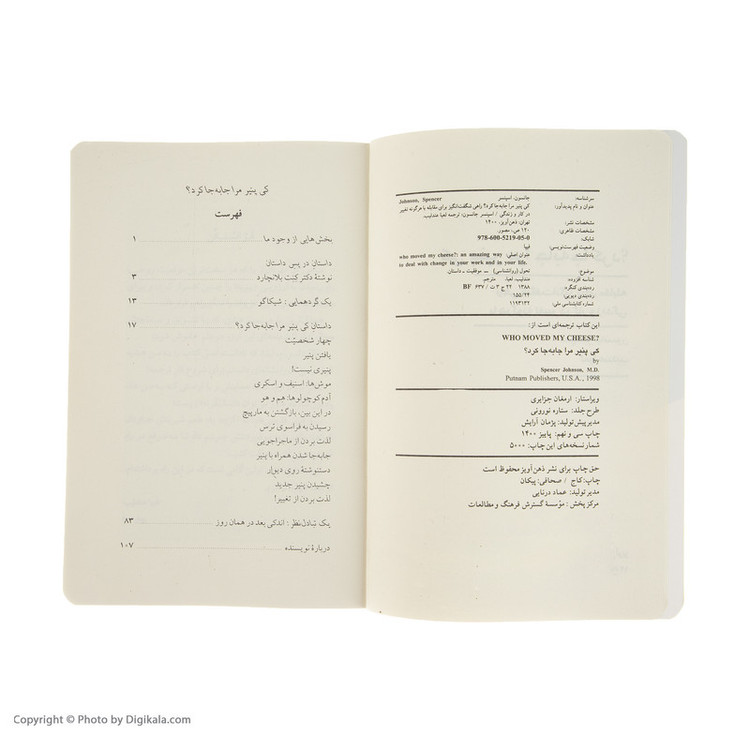 سرشناسه: جانسون، اسپنسر Johnson, Spencer
عنوان و نام پدیدآور: کی پنیر مرا جابه‌جا کرد؟ راهی شگفت‌انگیز برای مقابله با هرگونه تغییر
در کار و زندگی / اسپنسر جانسون؛ ترجمه لعیا عندلیب.
مشخصات نشر: تهران: ذهن‌آویز، ۱۴۰۰
مشخصات ظاهری: ۱۲۰ ص. مصور.
شابک: 978-600-5219-05-0
وضعیت فهرست‌نویسی: فیپا
یادداشت: عنوان اصلی: who moved my cheese?: an amazing way
to deal with change in your work and in your life.
موضوع: تحول (روانشناسی) ــ موفقیت ــ داستان
شناسه افزوده: عندلیب، لعیا. مترجم
رده‌بندی کنگره: ۱۳۸۸ ۲۲ ج ۳ ت / ۶۳۷ BF
رده‌بندی دیویی: ۱۵۵/۲۴
شماره کتابشناسی ملی: ۱۱۹۳۱۳۲
این کتاب ترجمه‌ای است از:
WHO MOVED MY CHEESE?
کی پنیر مرا جابه‌جا کرد؟
by
Spencer Johnson, M.D.
Putnam Publishers, U.S.A., 1998
ویراستار: ارمغان جزایری
طرح جلد: ستاره نورونی
مدیر پیش تولید: پژمان آرایش
چاپ سی و نهم: پاییز ۱۴۰۰
شمار نسخه‌های این چاپ: ۵۰۰۰
حق چاپ برای نشر ذهن‌آویز محفوظ است
چاپ: کاج / صحافی: پیکان
مدیر تولید: عماد درنایی
مرکز پخش: مؤسسهٔ گسترش فرهنگ و مطالعات
کی پنیر مرا جابه‌جا کرد؟
فهرست
بخش‌هایی از وجود ما ۱
داستان در پس داستان
نوشتهٔ دکتر کنت بلانچارد ۳
یک گردهمایی: شیکاگو ۱۳
داستان کی پنیر مرا جابه‌جا کرد؟ ۱۷
چهار شخصیّت
یافتن پنیر
پنیری نیست!
موش‌ها: اسنیف و اسکری
آدم کوچولوها: هم و هو
در این بین، بازگشتن به مارپیچ
رسیدن به فراسوی ترس
لذت بردن از ماجراجویی
جابه‌جا شدن همراه با پنیر
دستنوشتهٔ روی دیوار
چشیدن پنیر جدید
لذت بردن از تغییر!
یک تبادل‌نظر: اندکی بعد در همان روز ۸۳
دربارهٔ نویسنده ۱۰۷
Copyright © Photo by Digikala.com